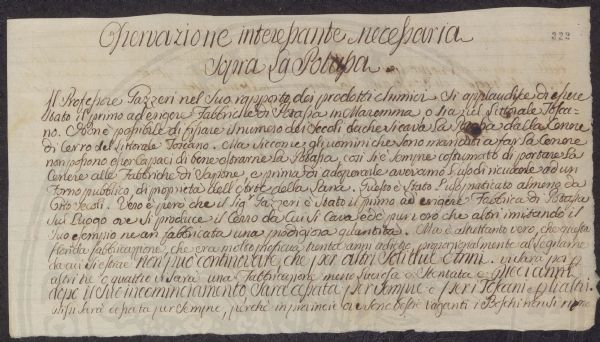 Osservazione interessante necessaria
Sopra La Potassa
222
Il Professore Tazzeri nel Suo rapporto dei prodotti chimici Si applaudisce di essere
Stato il primo ad erigere Fabbriche di Potassa in Maremma, o Sia nel Littorale Tosca-
no. Non è possibile di fissare il numero dei Secoli dache si cava La Potassa dalla Cenere
di Cerro del Littorale Toscano. Ma siccome gli uomini che Sono mandati a far La Cenere
non possono esser capaci di bene estrarne La Potassa, così si è Sempre costumato di portare La
Cenere alle Fabbriche di Sapone, e prima di adoperarle avevamo L'uso di ricuocerle ad un
Forno pubblico di proprietà dell'Arte della Lana. Questo è Stato L'uso praticato almeno da
Otto Secoli. Vero è però che il Sig.r Tazzeri è Stato il primo ad erigere Fabbrica di Potassa
Sul Luogo ove Si produce il Cerro da cui Si Cava ed è pur vero che altri imitando il
Suo esempio ne an fabbricata una prodigiosa quantità. Ma è altrettanto vero, che questa
florida fabbricazione, che era molto proficua trenta anni adietro, proporzionalmente al
da cui si estrae non può continovare, che per altri Sei Anni. vi Sarà per
altri tre o quattro vi Sarà una Fabbricazione meno Sugosa e Stentata e dieci anni
dopo il Suo incominciamento Sarà cessata per Sempre e per i Toscani e gli altri.
vi Sarà cessata per Sempre, perché in provincie ove Sono bestie vaganti i Boschi non Si